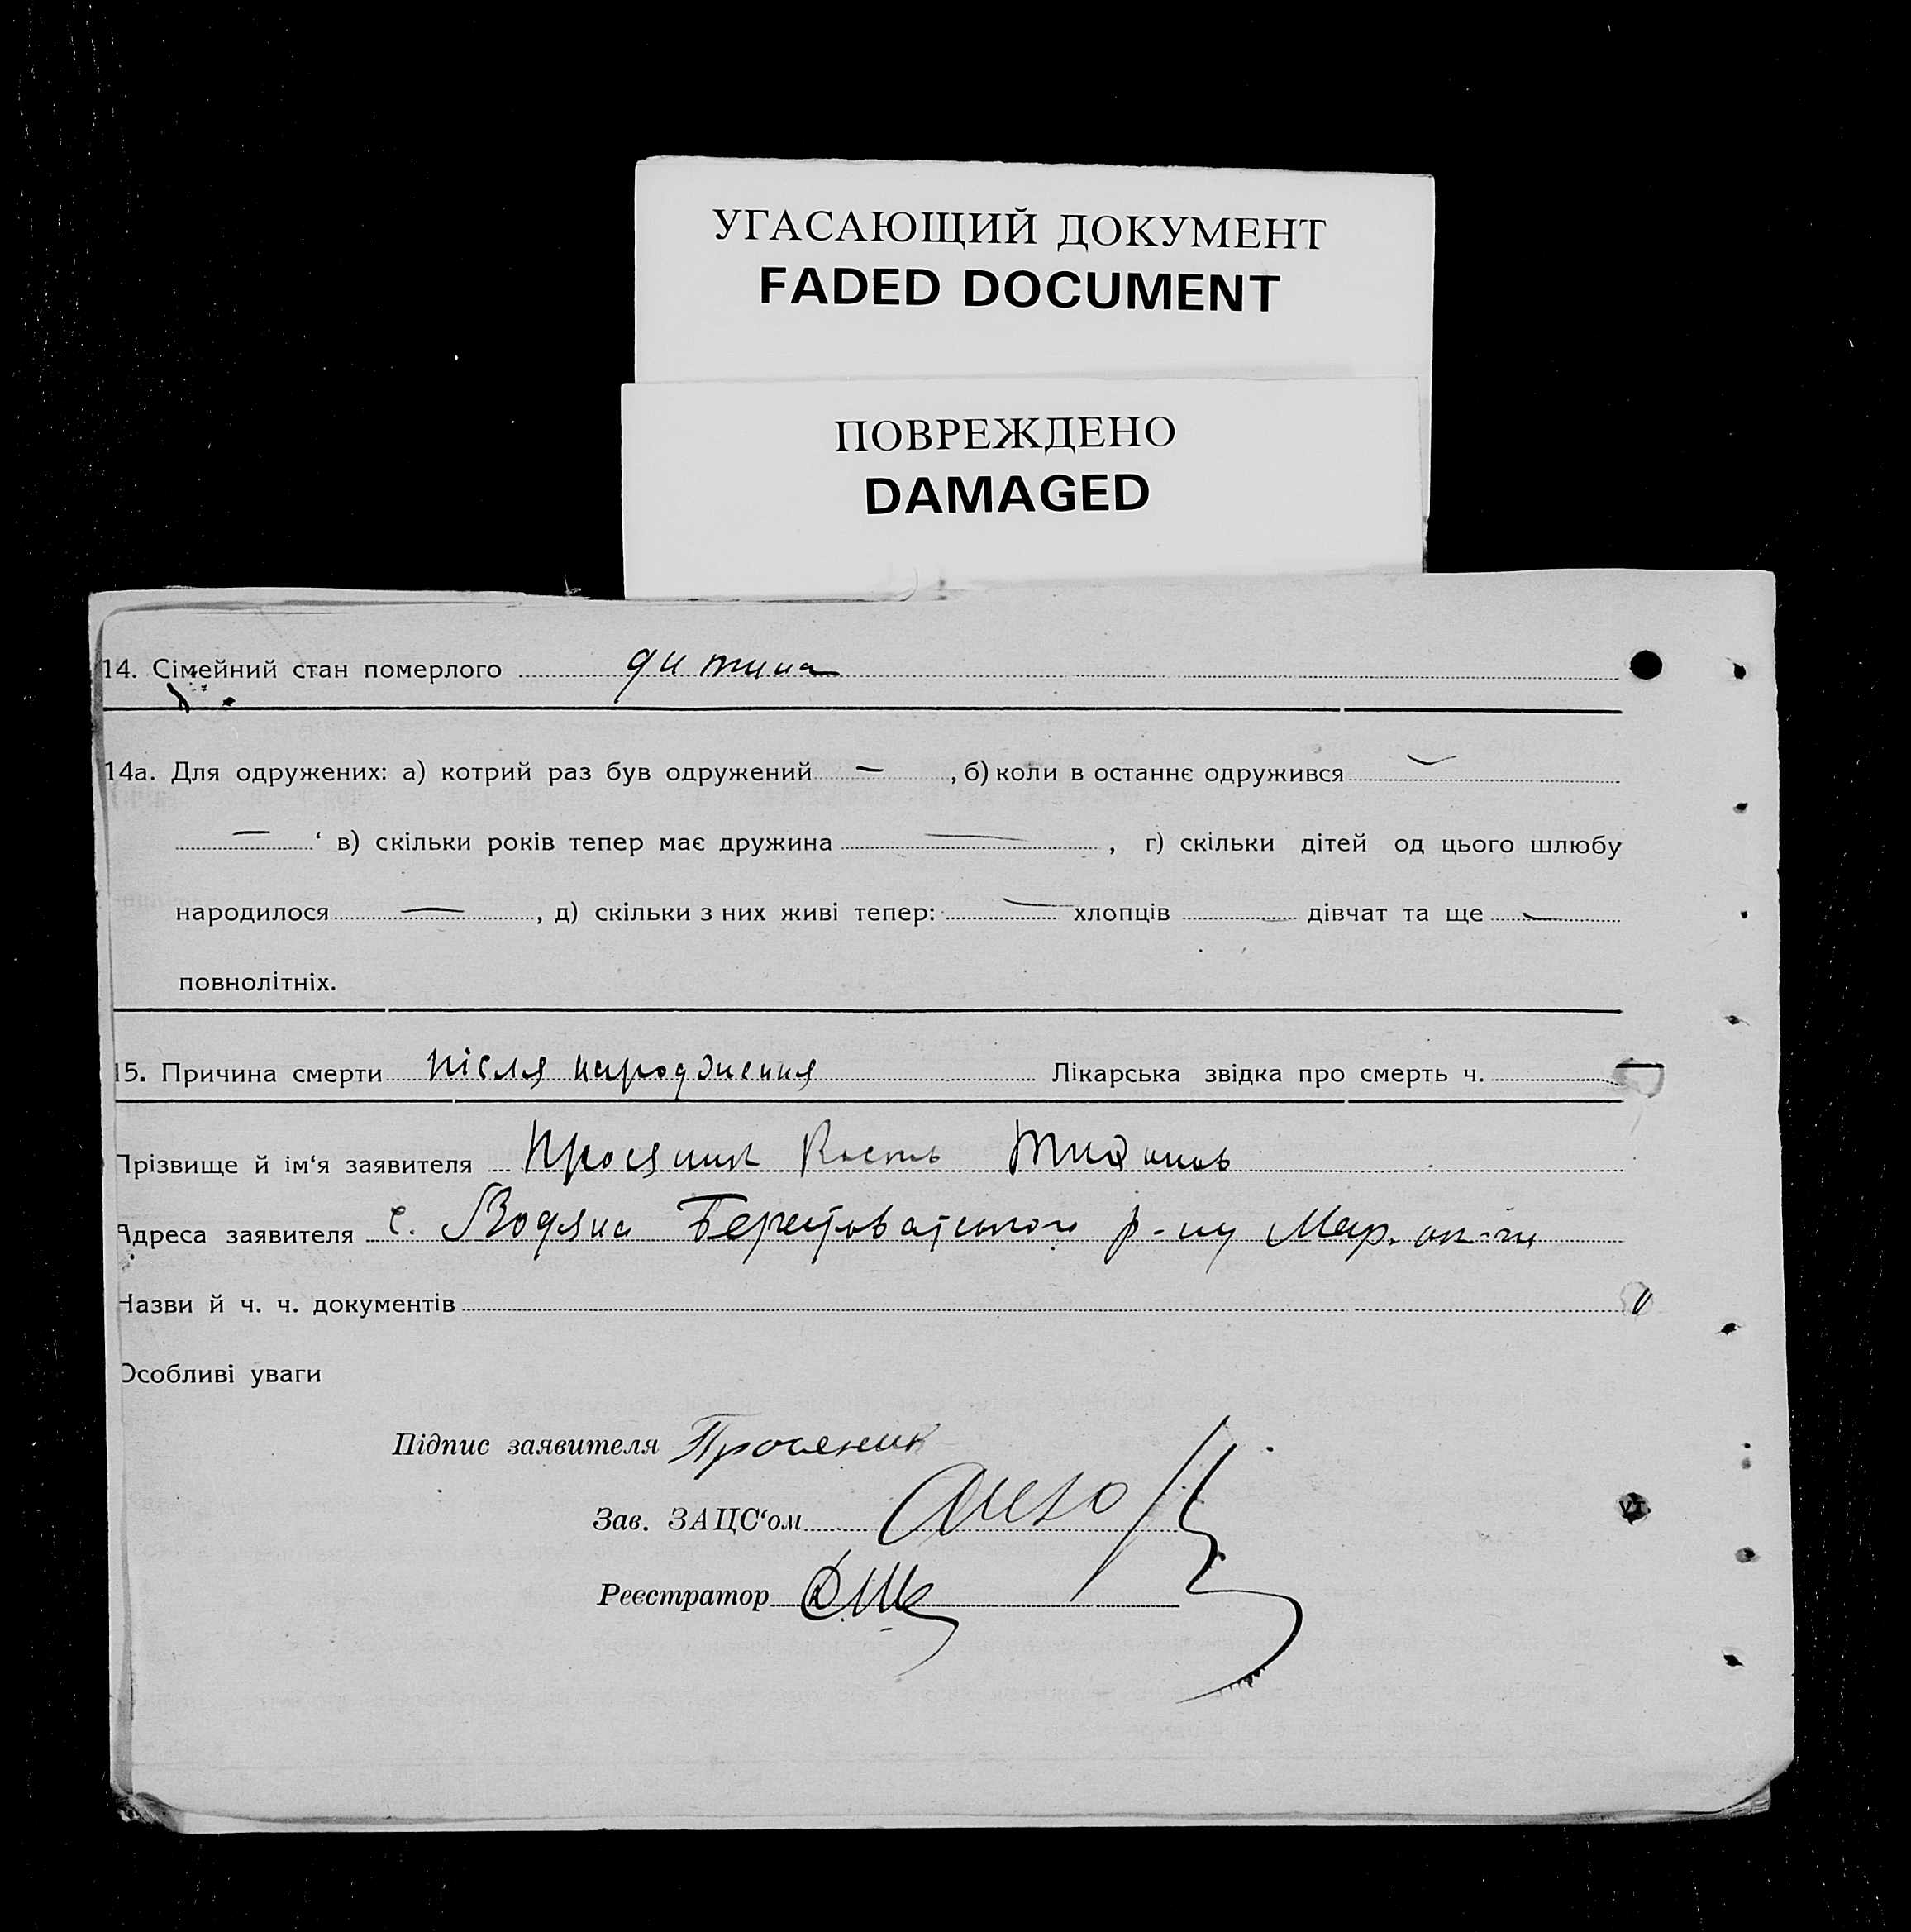 УГАСАЮЩИЙ ДОКУМЕНТ
FADED DOCUMENT
ПОВРЕЖДЕНО
DAMAGED
14. Сімейний стан померлого дитина
14а. Для одружених: а) котрий раз був одружений — , б) коли в останнє одружився —
— ‘ в) скільки років тепер має дружина — , г) скільки дітей од цього шлюбу
народилося — , д) скільки з них живі тепер: — хлопців — дівчат та ще —
повнолітніх.
15. Причина смерти після народження Лікарська звідка про смерть ч. —
Прізвище й ім‘я заявителя Просяник Кость
Адреса заявителя с. Водяна Берестоватського р-ну Мар. ок-ги
Назви й ч. ч. документів
Особливі уваги
Підпис заявителя Просяник
Зав. ЗАЦС‘ом
Реєстратор
ут.